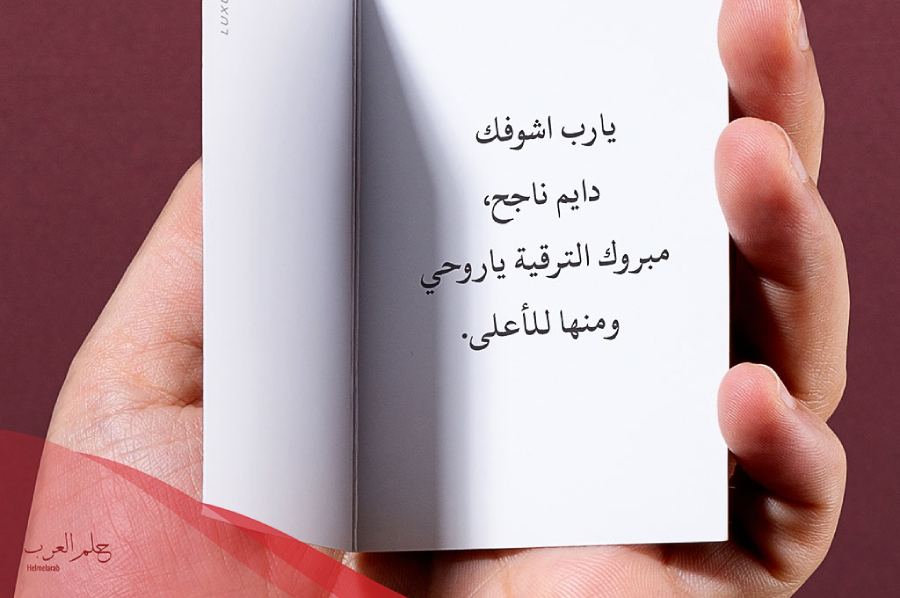 يارب اشوفك
دايم ناجح،
مبروك الترقية ياروحي
ومنها للأعلى.
حلم العرب
Helmelarab